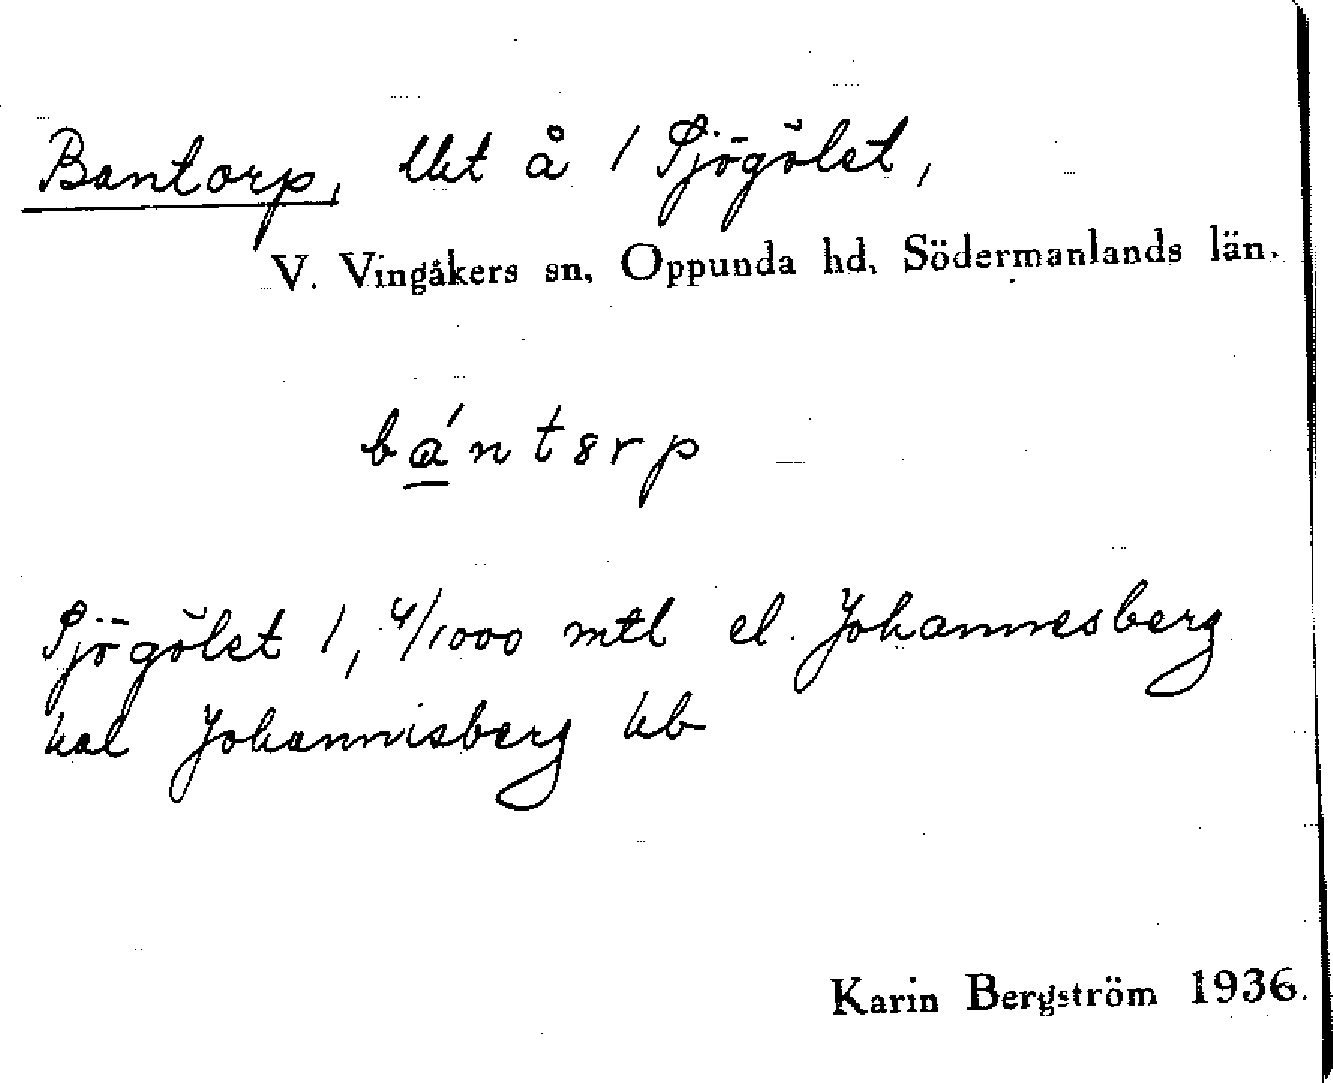 Bantorp, lht å 1 Sjögölet,
V. Vingåkers sn, Oppunda hd, Södermanlands län.
bántɞrp
Sjögölet 1, 4/1000 mtl el. Johannesberg
hal Johannisberg hb
Karin Bergström 1936.